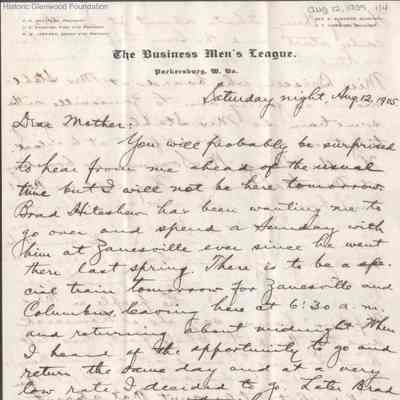 Historic Glenwood Foundation
Aug 12, 1905 1/4
The Business Men's League.
Parkersburg, W. Va.
Saturday night, Aug, 12, 1905
Dear Mother;
You will probably be surprised
to hear from me ahead of the usual
time but I will not be here tomorrow.
Brad Hiteshew has been wanting me to
go over and spend a Sunday with
him at Zanesville ever since he went
there last spring. There is to be a spe-
cial train tomorrow for Zanesville and
Columbus, leaving here at 6:30 a. m.
and returning about midnight. When
I heard of the opportunity to go and
return the same day and at a very
low rate, I decided to go. Later Brad